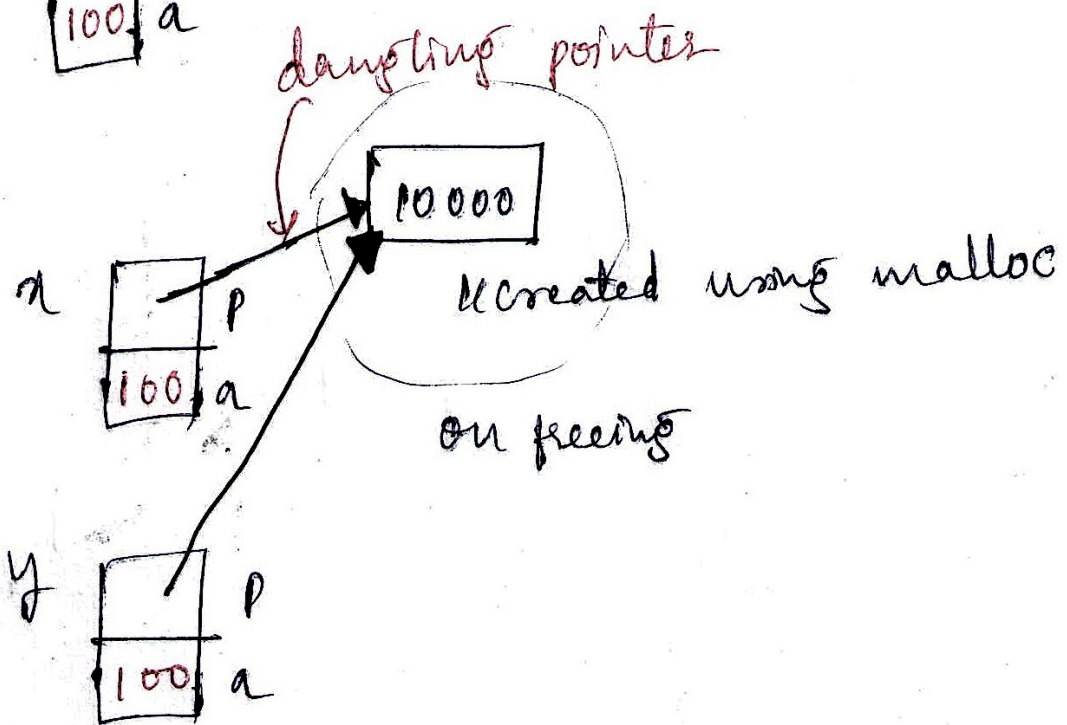 100 a
dangling pointer
10000
x
p
created using malloc
100 a
on freeing
y
p
100 a